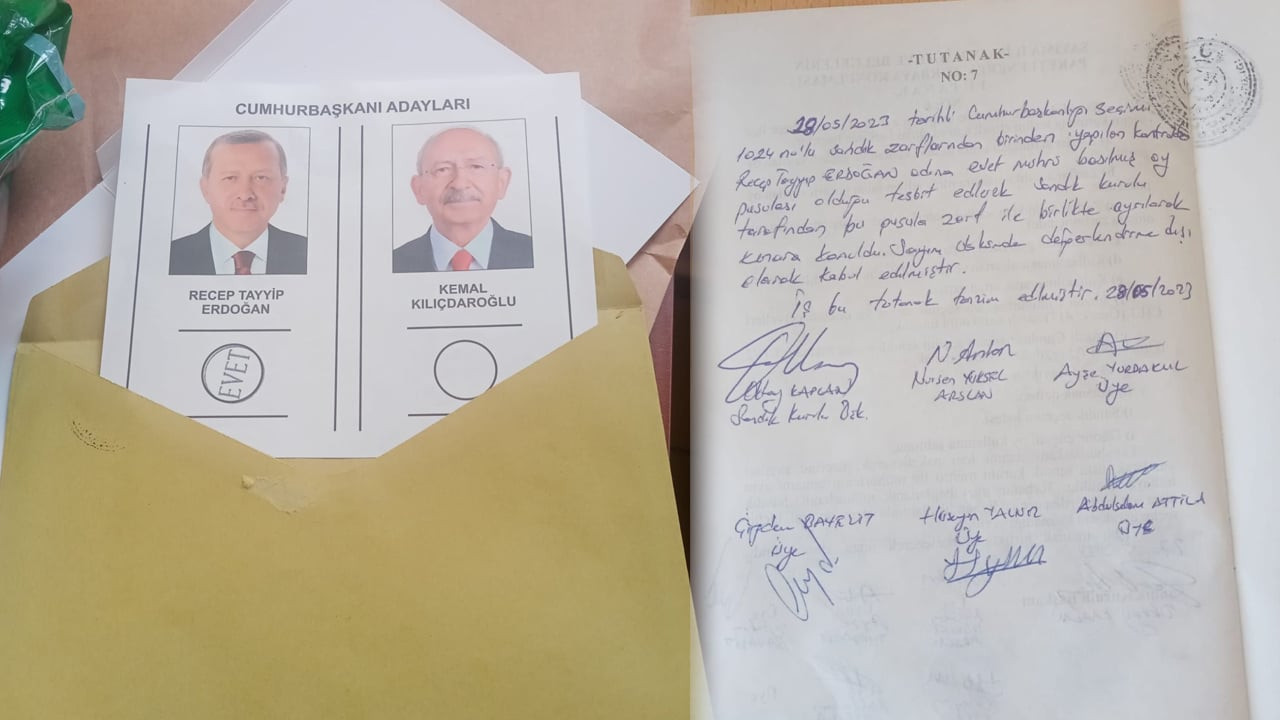 CUMHURBAŞKANI ADAYLARI
RECEP TAYYİP
ERDOĞAN
EVET
KEMAL
KILIÇDAROĞLU
-TUTANAK-
NO: 7
28/05/2023 tarihli Cumhurbaşkanlığı Seçimi
1024 no'lu sandık zarflarından birinden yapılan kontrolde
Recep Tayyip ERDOĞAN adına evet mührü basılmış oy
pusulası olduğu tesbit edilerek sandık kurulu
tarafından bu pusula zarf ile birlikte ayrılarak
kenara konuldu. Sayım dökümde değerlendirme dışı
olarak kabul edilmiştir.
İş bu tutanak tanzim edilmiştir. 28/05/2023
KAPLAN
Sandık Kurulu Bşk.
N. Arslan
Nursen YÜKSEL
ARSLAN
Ayşe YURDAKUL
Üye
Çiğdem
Üye
Hüseyin YALNIZ
Üye
Abdulselam ATTİLA
ÜYE